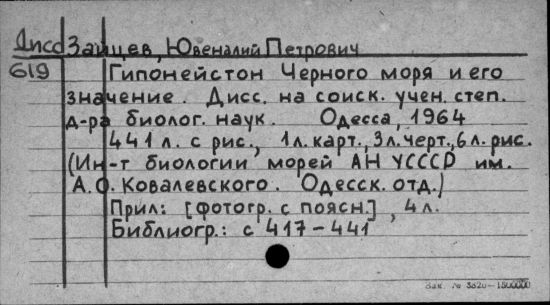 Дисс Зайцев, Ювеналий Петрович
619 Гипонейстон Черного моря и его
значение. Дисс. на соиск. учен. степ.
д-ра биолог. наук. Одесса, 1964
441 л. с рис., 1л. карт., 3л. черт., 6л. рис.
(Ин-т биологии морей АН УСССР им.
А.О. Ковалевского. Одесск. отд.)
Прил: [фотогр. с поясн.], 4 л.
Библиогр.: с 417-441
Зак. № 3820-1500000